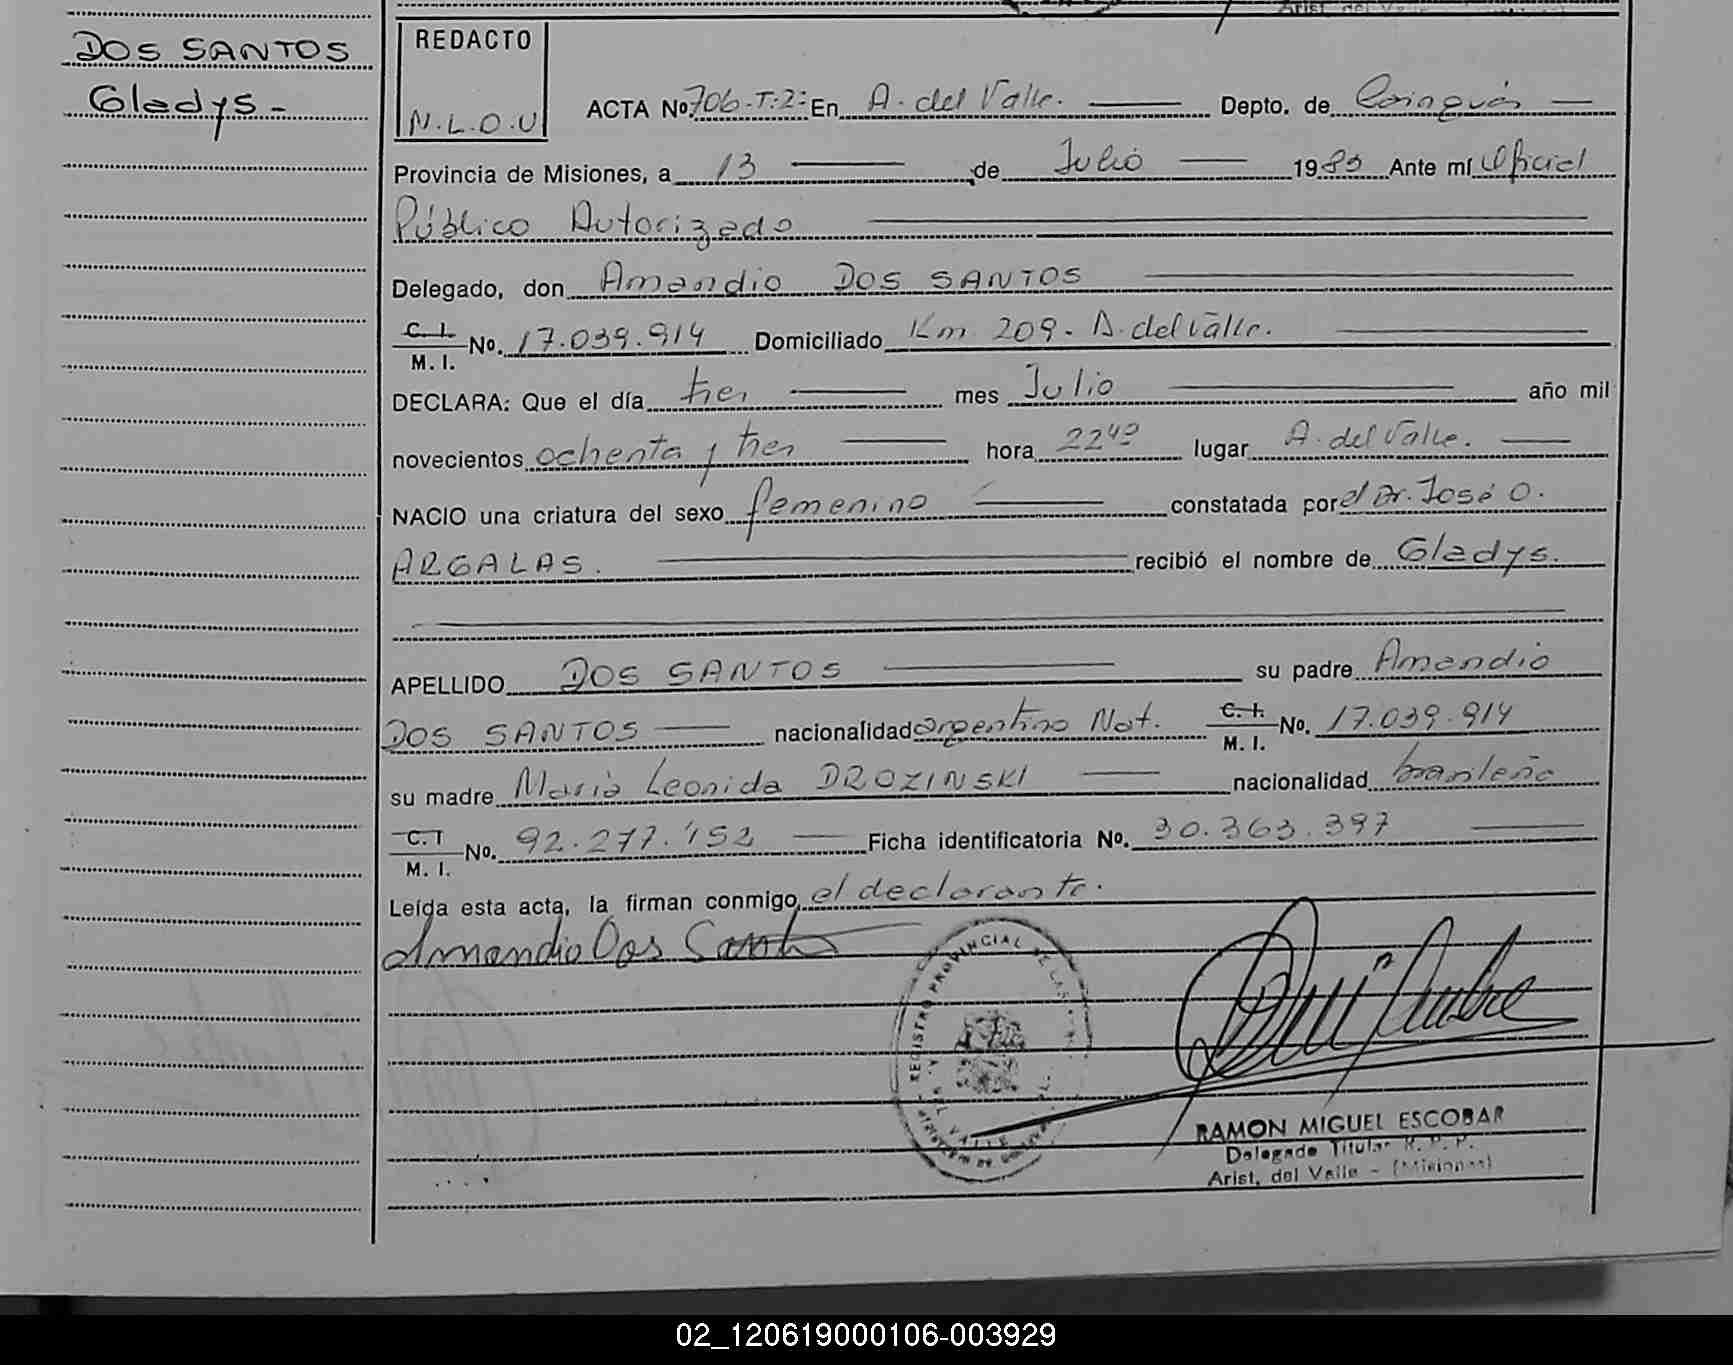 DOS SANTOS
Gladys -
REDACTO
N.L.O.U
ACTA No. 706-T:2: En A. del Valle. Depto. de Cainguás
Provincia de Misiones, a 13 de Julio 1983 Ante mí Oficial
Público Autorizado
Delegado, don Amandio DOS SANTOS
C. I.
M. I. No. 17.039.914 Domiciliado Km 209 - A. del Valle.
DECLARA: Que el día tres mes Julio año mil
novecientos ochenta y tres hora 22⁴⁰ lugar A. del Valle.
NACIO una criatura del sexo femenino constatada por el Dr. José O.
ARGALAS. recibió el nombre de Gladys.
APELLIDO DOS SANTOS su padre Amandio
DOS SANTOS nacionalidad argentino Nat. C. I. M. I. No. 17.039.914
su madre María Leonida DROZINSKI nacionalidad brasileña
C. I
M. I. No. 92.277.152 Ficha identificatoria No. 30.363.397
Leída esta acta, la firman conmigo, el declarante.
Amandio Dos Santos
REGISTRO PROVINCIAL DE LAS
DEL VALLE
RAMON MIGUEL ESCOBAR
Delegado Titular R. P. P.
Arist. del Valle - (Misiones)
02_120619000106-003929